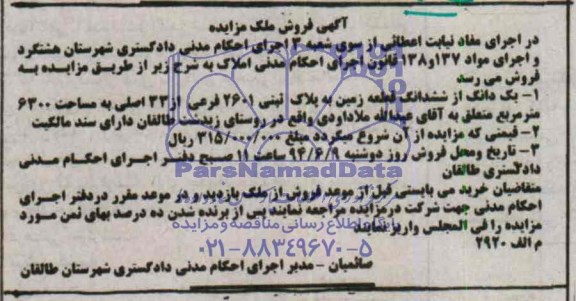 آگهی فروش ملک مزایده
در اجرای مفاد نیابت اعطائی از سوی شعبه ۳ اجرای احکام مدنی دادگستری شهرستان هشتگرد
و اجرای مواد ۱۳۷و۱۳۸ قانون اجرای احکام مدنی املاک به شرح زیر از طریق مزایده به
فروش می رسد
۱- یک دانگ از ششدانگ قطعه زمین به پلاک ثبتی ۲۶۰۱ فرعی از ۳۳ اصلی به مساحت ۶۳۰۰
مترمربع متعلق به آقای عبدالله ملاداودی واقع در روستای زیدشت طالقان دارای سند مالکیت
۲- قیمتی که مزایده از آن شروع میگردد مبلغ ۳۱۵/۰۰۰/۰۰۰ ریال
۳- تاریخ ومحل فروش روز دوشنبه ۹۴/۶/۹ ساعت ۱۱ صبح دفتر اجرای احکام مدنی
دادگستری طالقان
متقاضیان خرید می بایستی قبل از موعد فروش از ملک بازدید و در موعد مقرر دردفتر اجرای
احکام مدنی جهت شرکت درمزایده مراجعه نمایند پس از برنده شدن ده درصد بهای ثمن مورد
مزایده را فی المجلس واریز نمایند
م الف ۲۹۲۰
صائمیان - مدیر اجرای احکام مدنی دادگستری شهرستان طالقان
ParsNamadData
پایگاه اطلاع رسانی مناقصه و مزایده
۰۲۱-۸۸۳۴۹۶۷۰-۵